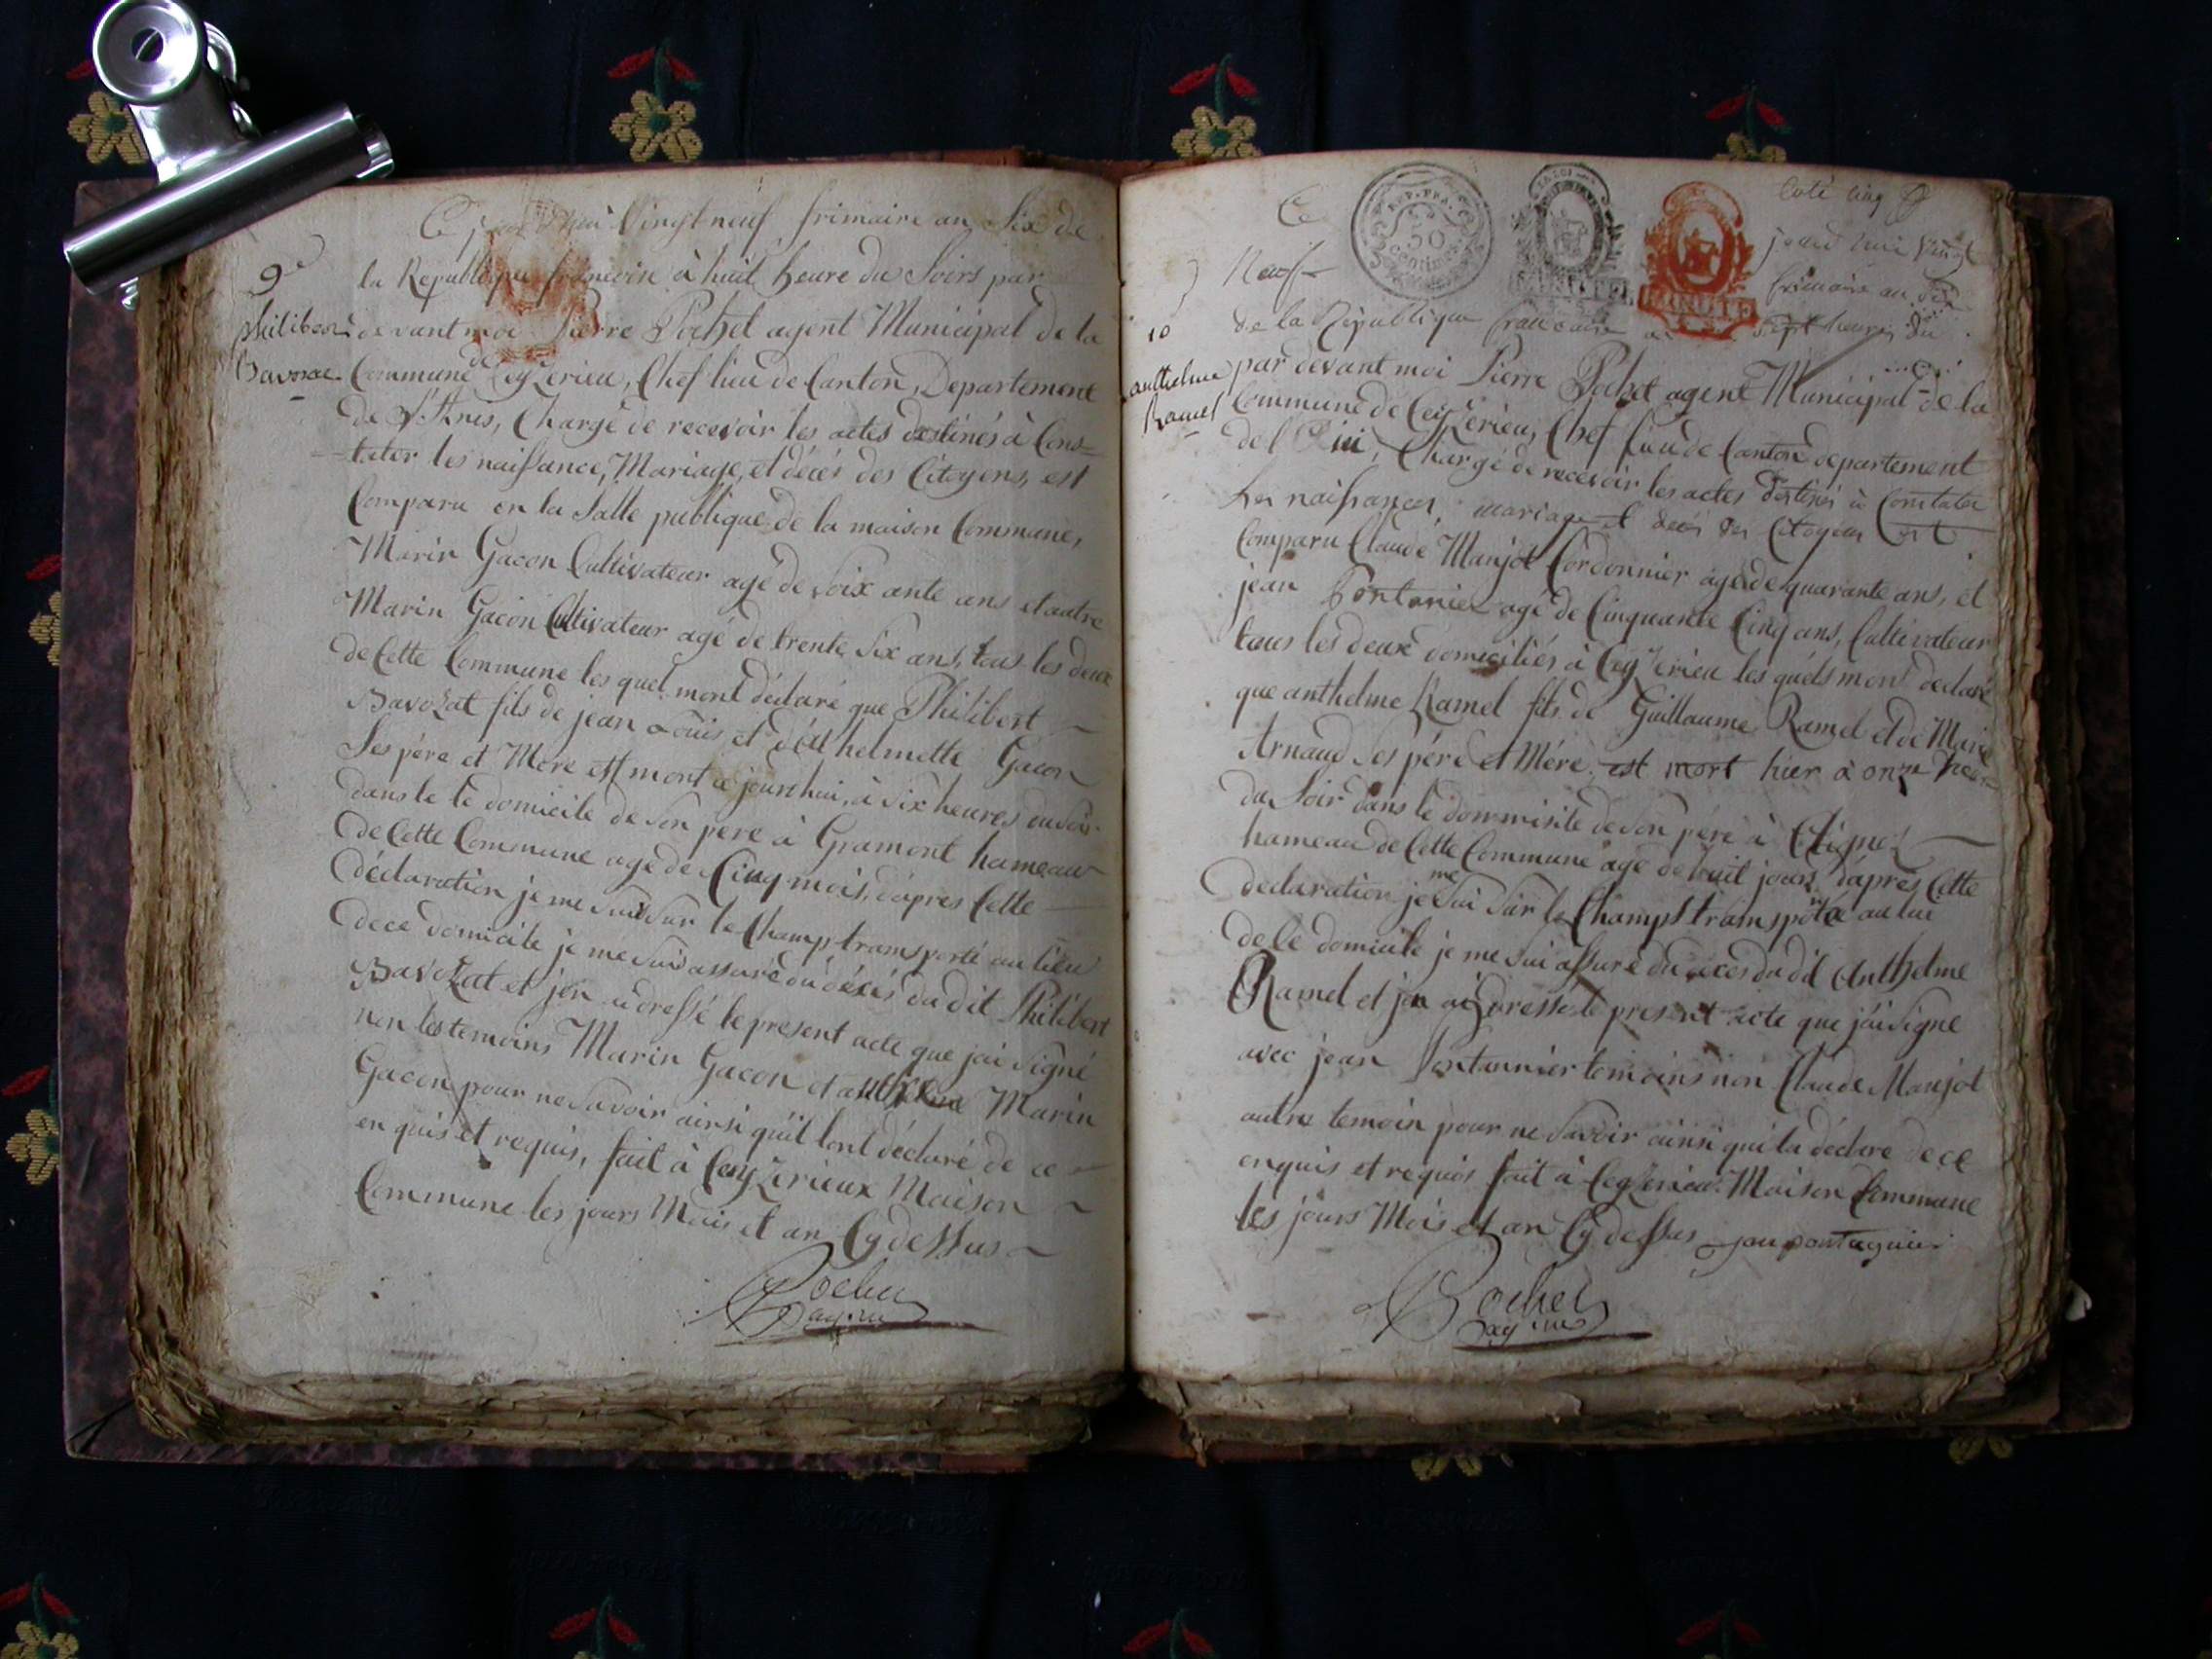 Ce jourd'hui Vingt neuf frimaire an Six de
9e
la Republique francoise à huit heure du Soirs par
philibert
devant moi Pierre Pochet agent Municipal de la
Bavozat
Commune de Ceyzerieu, Chef lieu de Canton, Departement
de l'Ains, Chargé de recevoir les actes destinés à Cons=
=tater les naissance, Mariage, et décés des Citoyens, est
Comparu en la Salle publique de la maison Commune,
Marin Gacon Cultivateur agé de soix ante ans et autre
Marin Gacon Cultivateur agé de trente Six ans, tous les deux
de Cette Commune les quel mont déclaré que Philibert
Bavozat fils de jean Louis et d'Anthelmette Gacon
Ses père et Mere est mont ce jourdhui, à Six heures du Soir
dans le le domicile de son pere à Gramont hameau
de Cette Commune agé de Cinq mois, dapres Cette
déclaration je me suis sur le Champ transporté au lieu
de ce domicile je me suis assuré du décés du dit Philibert
Bavozat et jen ai dressé le present acte que jai Signé
non les temoins Marin Gacon et Marin
Gacon pour ne Savoir ainsi quil lont déclaré de ce
en quis et requis, fait à Ceyzerieux Maison
Commune les jours Mois et an Cy dessus
Pochet
agent
Coté Cinq
Ce jourd'hui Vingt
REP. FRA.
50
Centimes
MINUTE
MINUTE
Neuf frimaire an Six
10
de la République francaise a Sept heures du
anthelme
Ramel
par devant moi Pierre Pochet agent Municipal de la
Commune de Ceyzerieu, Chef lieu de Canton departement
de l'Ain, Chargé de recevoir les actes destinés à Constater
Les naissances, mariage et decés des Citoyens est
Comparu Claude Manjot Cordonnier agé de quarante ans, et
jean Pontanier agé de Cinquante Cinq ans, Cultivateur
tous les deux domiciliés à Ceyzerieu les quels mont declaré
que anthelme Ramel fils de Guillaume Ramel et de Marie
Arnaud ses péré et Méré est mort hier à onze heur=
du Soir dans le dommisile de son péré à Aignoz
hameau de Cette Commune agé de huit jours d'après Cette
declaration je me Sui Sur le Champs transpoté au lui
de le domicile je me sui assuré du deces du dit Anthelme
Ramel et jen ai dressé le present acte que j'ai signe
avec jean Pontannier temoins non Claude Manjot
autre temoin pour ne Savoir ainsi qui la déclare de ce
enquis et requis fait à Ceyzerieu Maison Commune
les jours Mois et an Cy dessus jan pontagnier
Pochet
agent